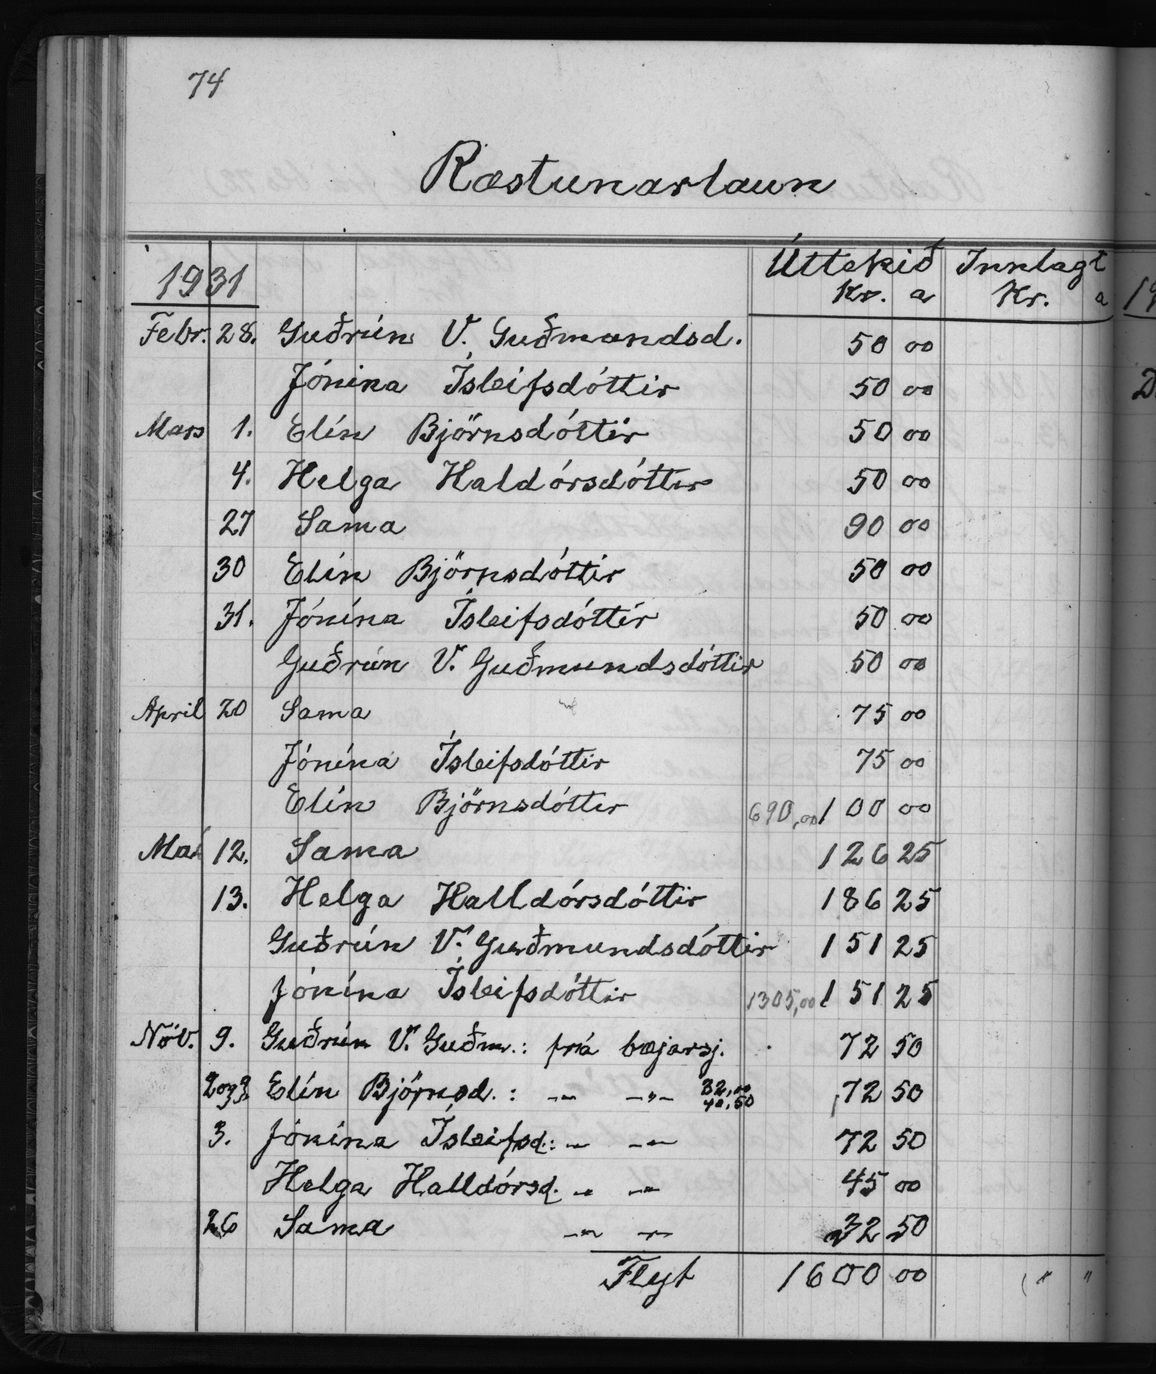 74
Ræstunarlaun
1931 Úttekið Innlagt
Kr. a Kr. a
Febr. 28. Guðrún V. Guðmundsd. 50 00
Jónína Ísleifsdóttir 50 00
Mars 1. Elín Björnsdóttir 50 00
4. Helga Haldórsdóttir 50 00
27 Sama 90 00
30 Elín Björnsdóttir 50 00
31. Jónína Ísleifsdóttir 50 00
Guðrún V. Guðmundsdóttir 50 00
April 20 Sama 75 00
Jónína Ísleifsdóttir 75 00
Elín Björnsdóttir 690,00 100 00
Maí 12. Sama 126 25
13. Helga Halldórsdóttir 186 25
Guðrún V. Guðmundsdóttir 151 25
Jónína Ísleifsdóttir 1305,00 151 25
Nóv. 9. Guðrún V. Guðm.: frá bæjarsj. 72 50
2og3 Elín Björnsd.: -"- -"- 32,00 40,50 72 50
3. Jónína Ísleifsd.: -"- -"- 72 50
Helga Halldórsd. -"- -"- 45 00
26 Sama -"- -"- 32 50
Flyt 1600 00 " "